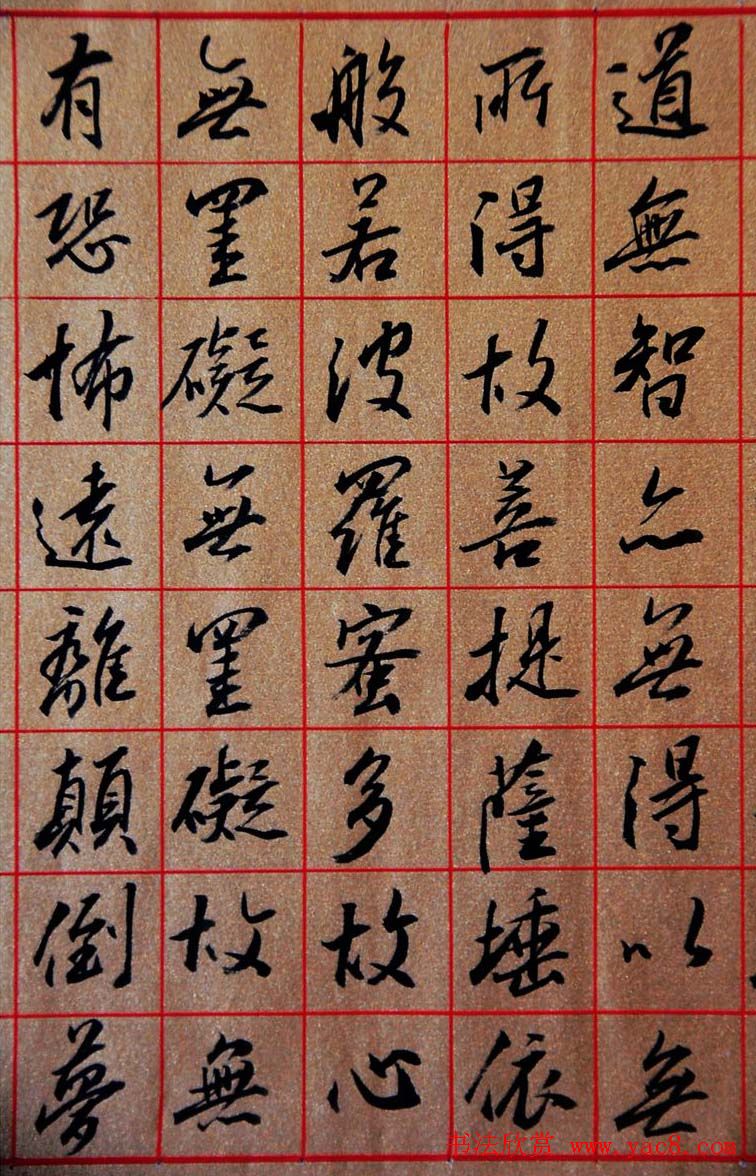 道無智亦無得以無
所得故菩提薩埵依
般若波羅蜜多故心
無罣礙無罣礙故無
有恐怖遠離顛倒夢
书法欣赏 www.yac8.com